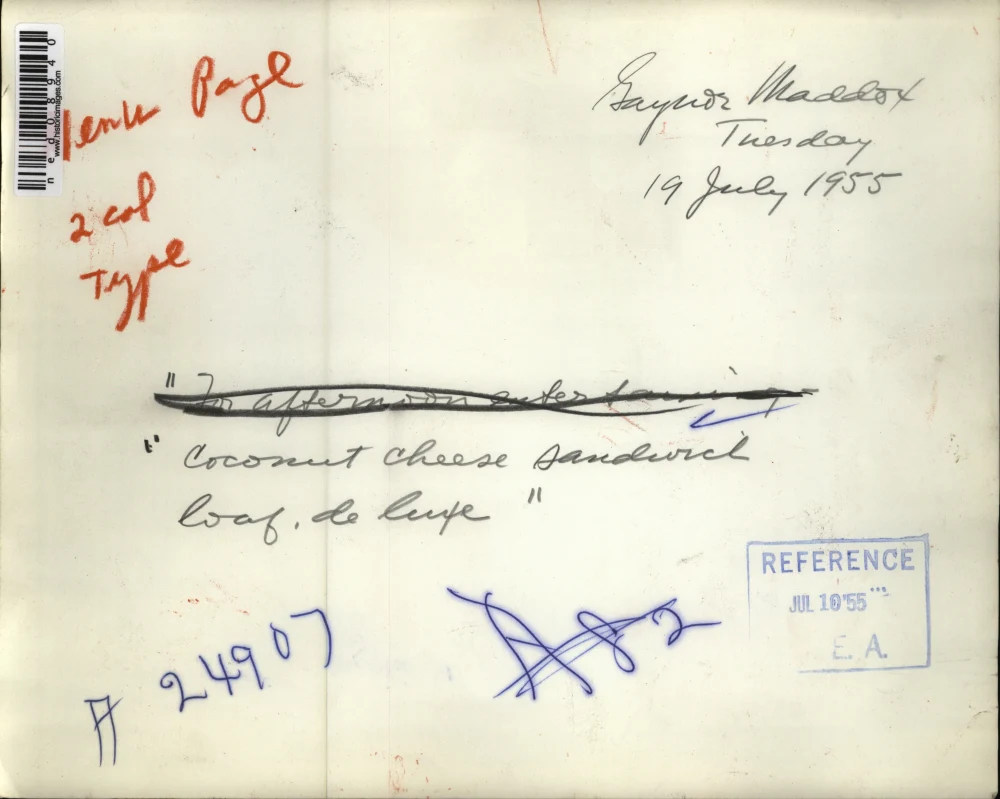 ned08940
www.historicimages.com
Page
2 col
Type
Gaynor Maddox
Tuesday
19 July 1955
"For afternoon entertaining
"Coconut cheese sandwich
loaf, de luxe"
REFERENCE
JUL 10 '55
E. A.
A 24907